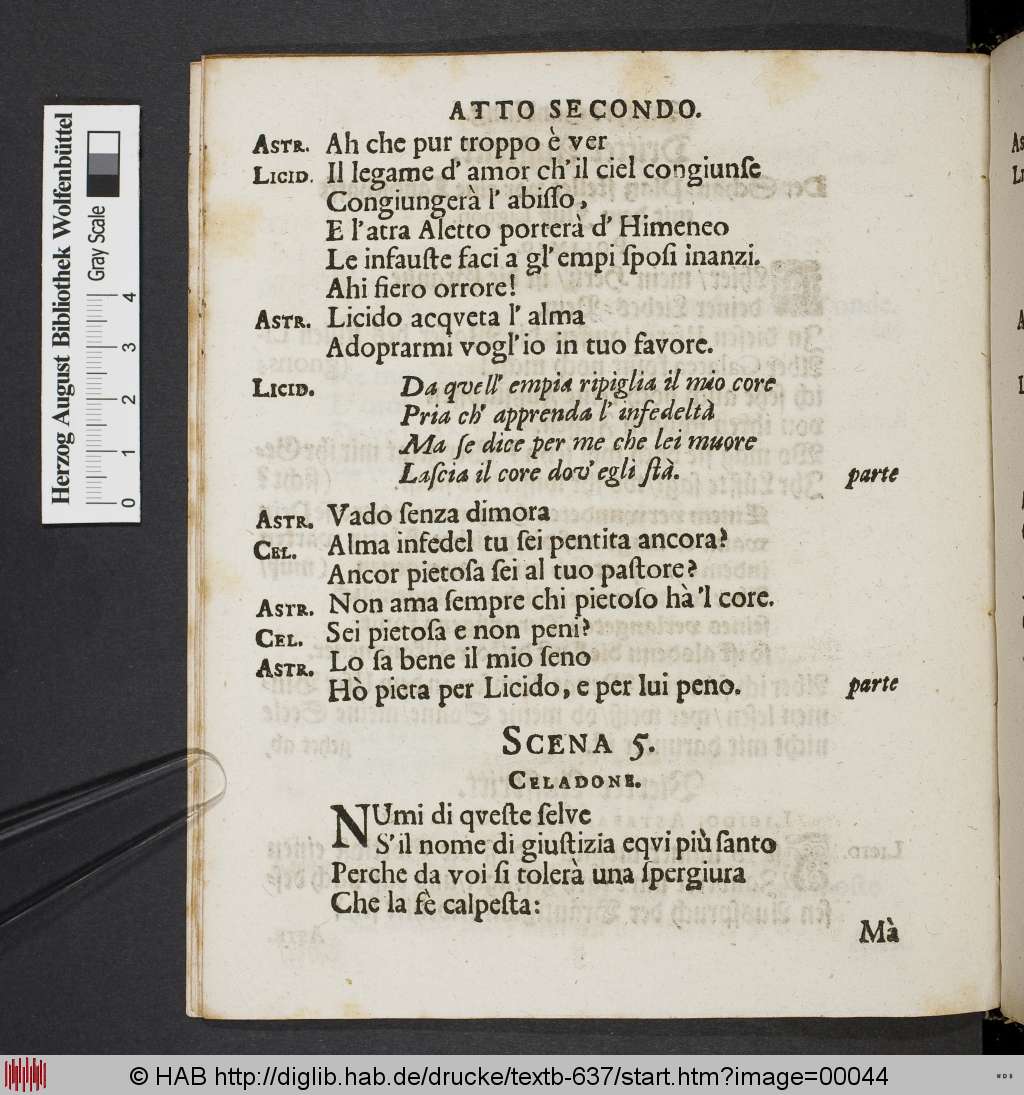 ATTO SECONDO.
ASTR. Ah che pur troppo è ver
LICID. Il legame d' amor ch' il ciel congiunſe
Congiungerà l' abiſſo,
E l'atra Aletto porterà d' Himeneo
Le infauſte faci a gl' empi ſpoſi inanzi.
Ahi fiero orrore!
ASTR. Licido acqveta l' alma
Adoprarmi vogl'io in tuo favore.
LICID. Da qvell' empia ripiglia il mio core
Pria ch' apprenda l' infedeltà
Ma ſe dice per me che lei muore
Laſcia il core dov' egli ſtà. parte
ASTR. Vado ſenza dimora
CEL. Alma infedel tu ſei pentita ancora?
Ancor pietoſa ſei al tuo paſtore?
ASTR. Non ama ſempre chi pietoſo hà 'l core.
CEL. Sei pietoſa e non peni?
ASTR. Lo ſa bene il mio ſeno
Hò pieta per Licido, e per lui peno. parte
SCENA 5.
CELADONE.
NUmi di qveſte ſelve
S' il nome di giuſtizia eqvi più ſanto
Perche da voi ſi tolerà una ſpergiura
Che la fè calpeſta:
Mà
Herzog August Bibliothek Wolfenbüttel
Gray Scale
0 1 2 3 4
© HAB http://diglib.hab.de/drucke/textb-637/start.htm?image=00044